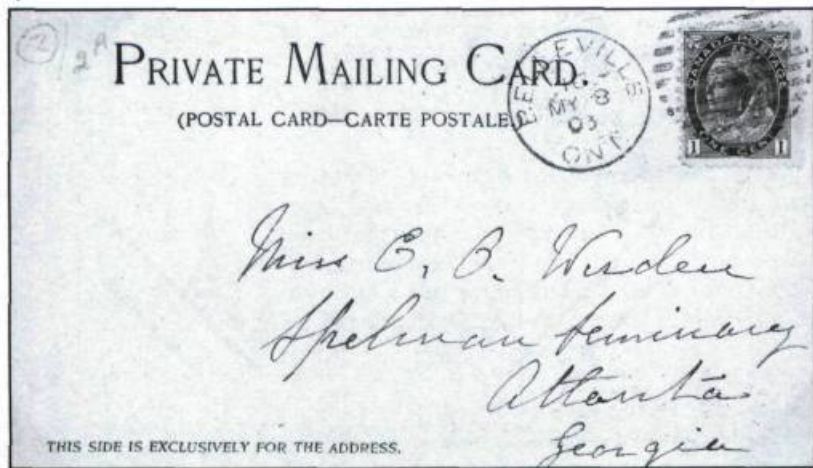 2
2A
PRIVATE MAILING CARD.
(POSTAL CARD—CARTE POSTALE.)
BELLEVILLE
MY 8
03
ONT
CANADA POSTAGE
ONE CENT
1 1
Miss E. B. Werden
Spelman Seminary
Atlanta
Georgia
THIS SIDE IS EXCLUSIVELY FOR THE ADDRESS.